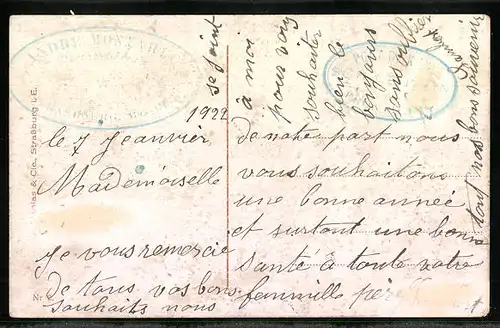 1922
le 7 Jeanvier
Mademoiselle
Je vous remercie
de tous vos bons
souhaits nous
de notre part nous
vous souhaitons
une bonne année
et surtout une bonne
santé à toute votre
fammille père
se joint
à moi
pour vous
souhaiter
bien le
bonjours
sans oublier
tous vos bons souvenir
& Cie, Straßburg i. E.
Nr.
ANDRÉ